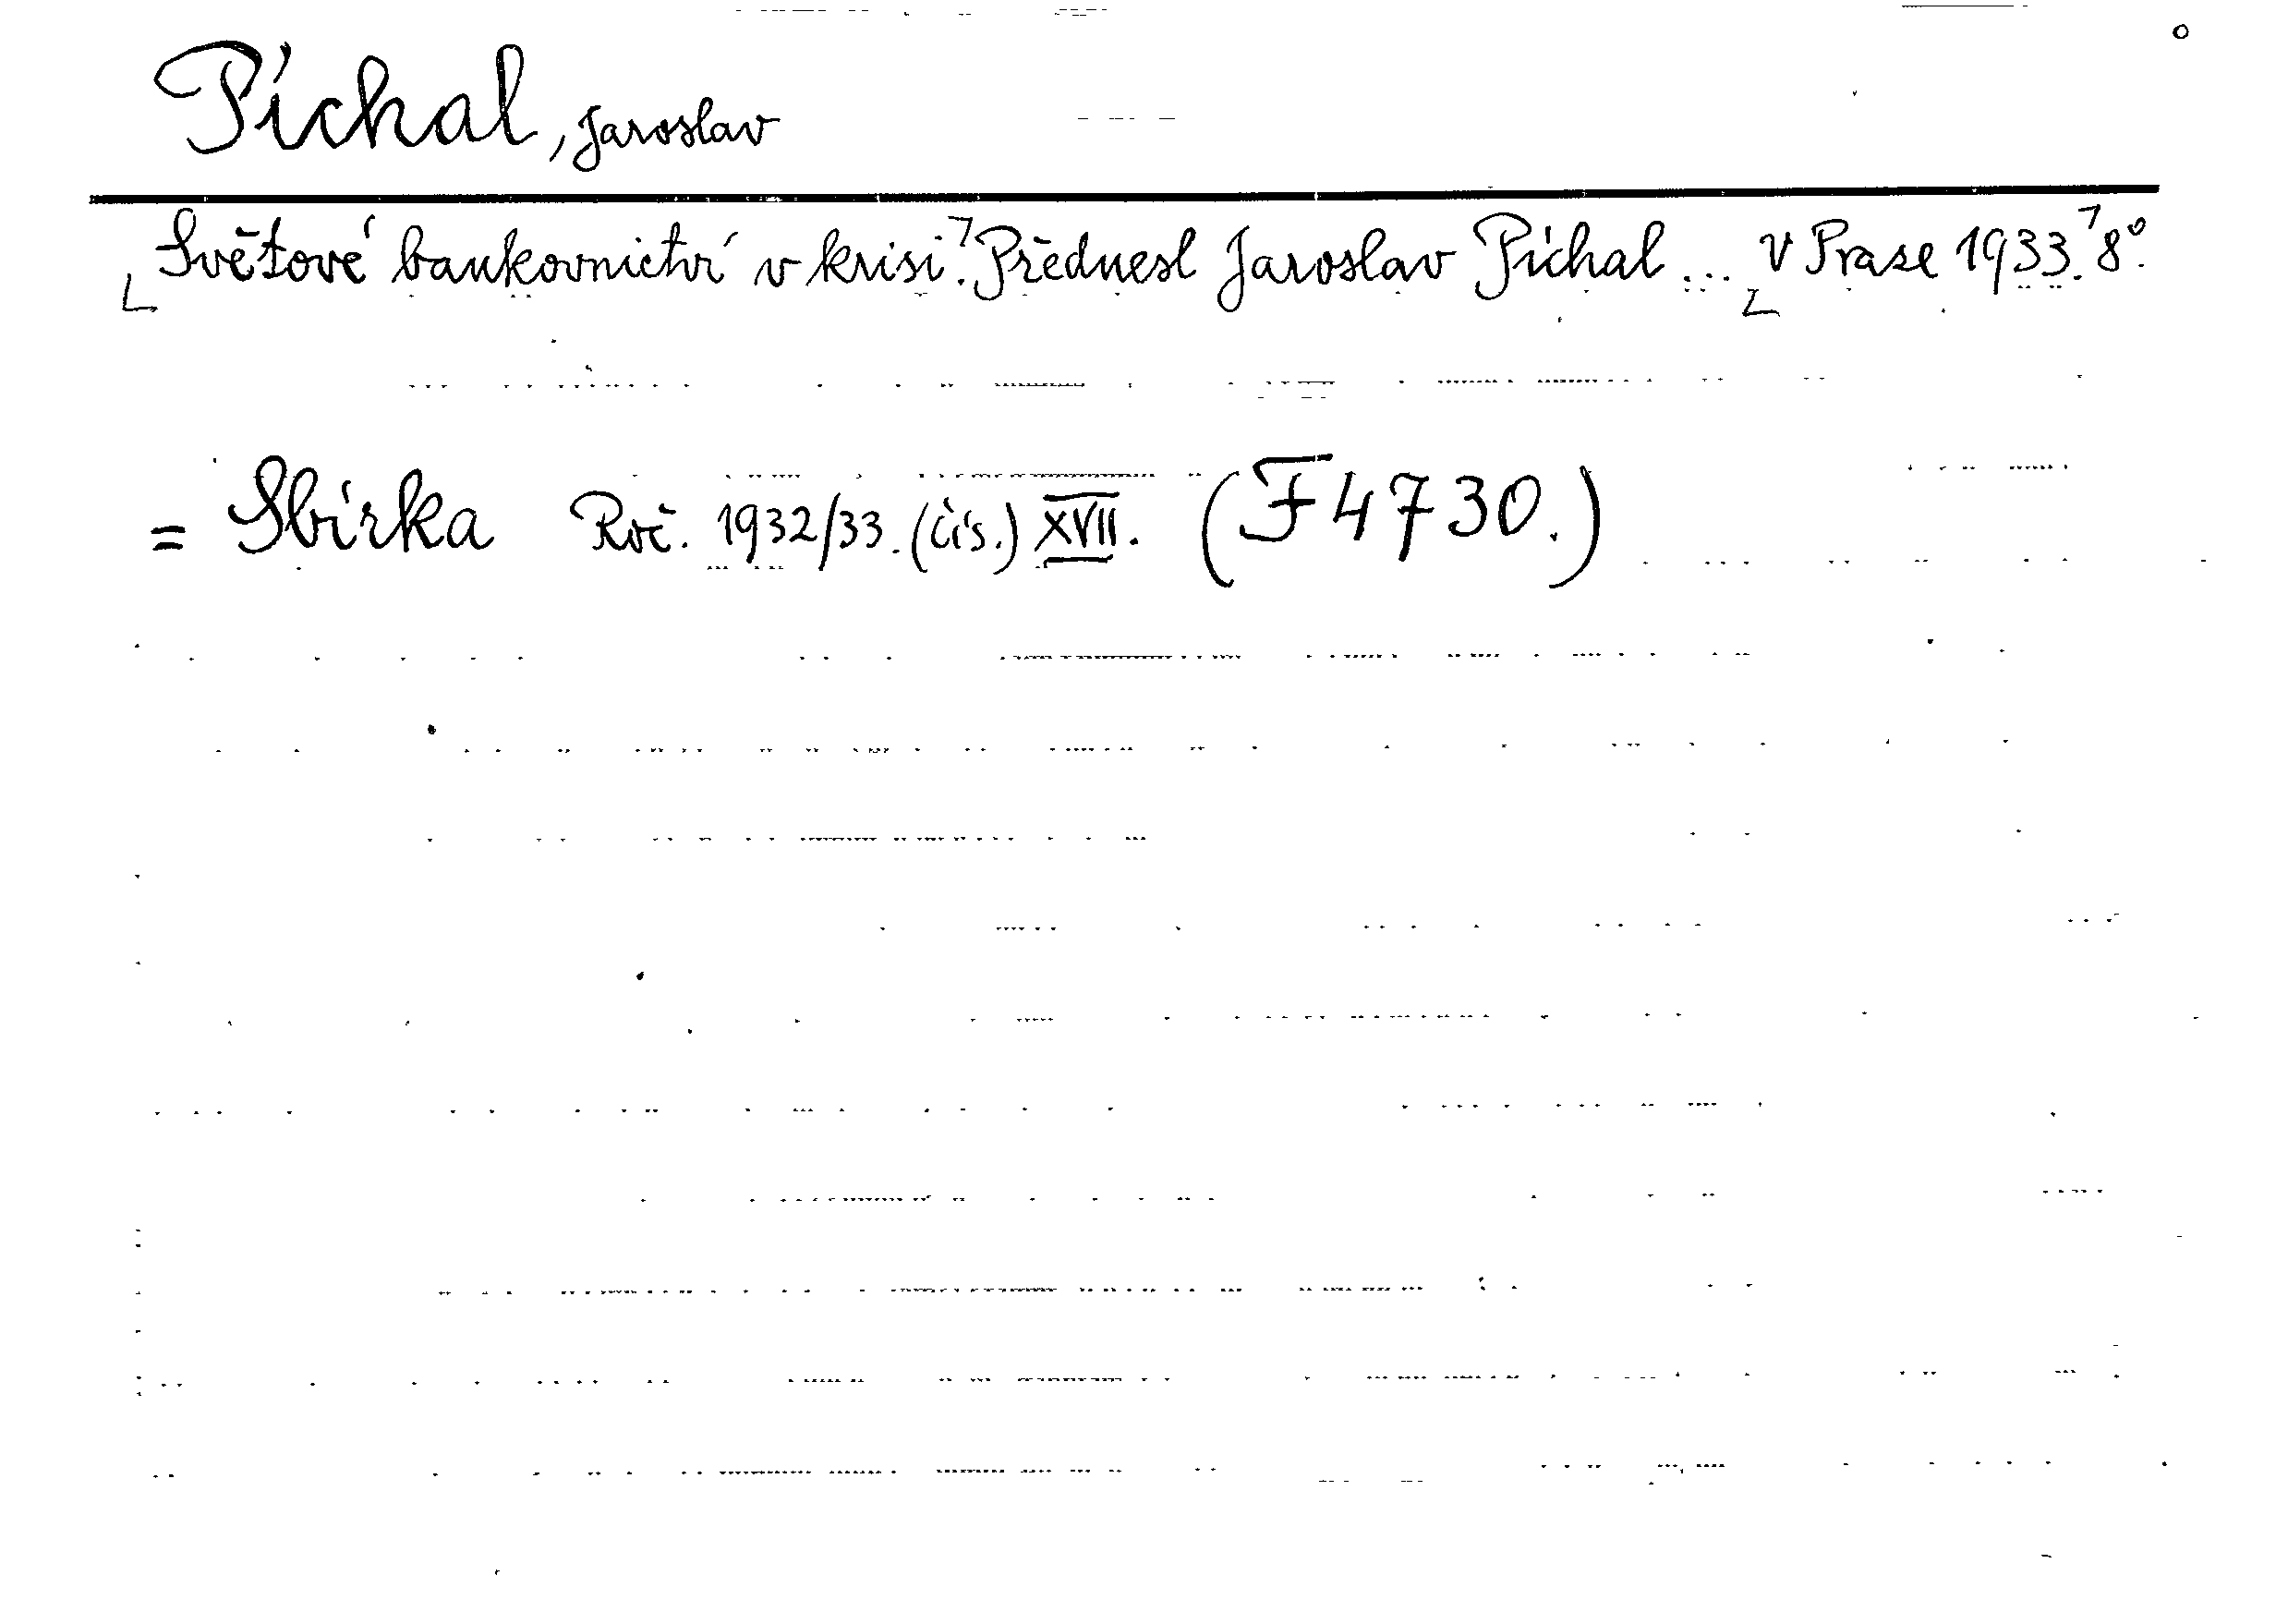 Píchal, Jaroslav
└Světové bankovnictví v krisi.┐ Přednesl Jaroslav Píchal... └V Prase 1933.┐ 8°.
= Sbírka Roč. 1932/33. (čís.) XVII. (F 4730.)